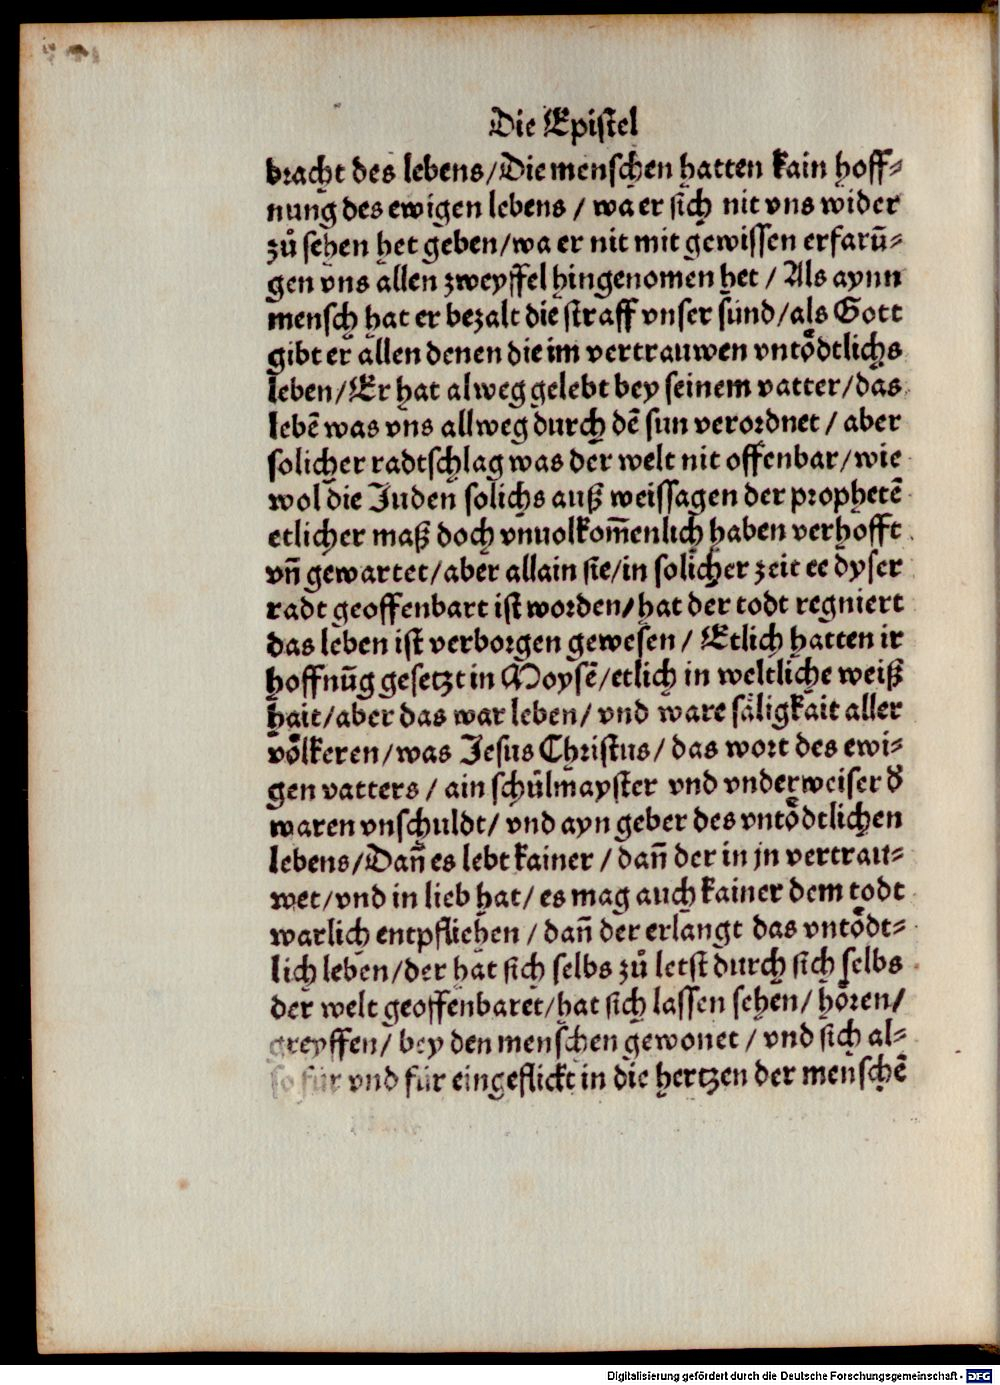 Die Epistel
bracht des lebens/Die menschen hatten kain hoff-
nung des ewigen lebens / wa er sich nit vns wider
zů sehen het geben/wa er nit mit gewissen erfarū-
gen vns allen zweyffel hingenomen het / Als aynn
mensch hat er bezalt die straff vnser sünd/als Gott
gibt er allen denen die im vertrauwen vntödtlichs
leben/Er hat alweg gelebt bey seinem vatter/das
lebē was vns allweg durch dē sun verordnet / aber
solicher radtschlag was der welt nit offenbar/wie
wol die Juden solichs auß weissagen der prophetē
etlicher maß doch vnuolkom̄enlich haben verhofft
vn̄ gewartet/aber allain sie/in solicher zeit ee dyser
radt geoffenbart ist worden/hat der todt regniert
das leben ist verborgen gewesen / Etlich hatten ir
hoffnūg gesetzt in Moysē/etlich in weltliche weiß
hait/aber das war leben/ vnd ware säligkait aller
völkeren/was Jesus Christus/ das wort des ewi-
gen vatters / ain schůlmayster vnd vnderweiser d̕
waren vnschuldt/ vnd ayn geber des vntödtlichen
lebens/Dan̄ es lebt kainer / dan̄ der in jn vertrau-
wet/vnd in lieb hat/ es mag auch kainer dem todt
warlich entpfliehen / dan̄ der erlangt das vntödt-
lich leben/der hat sich selbs zů letst durch sich selbs
der welt geoffenbaret/hat sich lassen sehen/ hören/
greyffen/ bey den menschen gewonet / vnd sich al-
so für vnd für eingeflickt in die hertzen der menschē
Digitalisierung gefördert durch die Deutsche Forschungsgemeinschaft - DFG